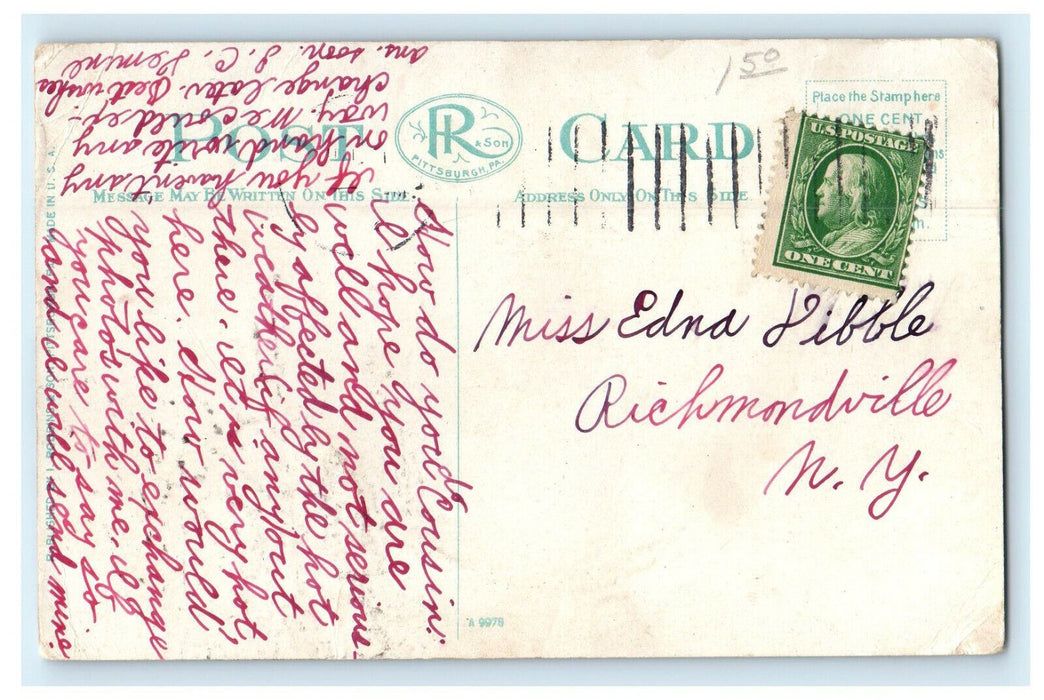 1 50
Place the Stamp here
ONE CENT
POST CARD
R & Son
PITTSBURGH, PA.
MESSAGE MAY BE WRITTEN ON THIS SIDE
ADDRESS ONLY ON THIS SIDE
U.S. POSTAGE
ONE CENT
Miss Edna Dibble
Richmondville
N. Y.
How do you do Cousin.
I hope you are
well and not serious-
ly affected by the hot
weather if any out
there. it is very hot
here. How would
you like to exchange
photos with me. if
you care to say so
and I will send mine.
If you havent any
on hand write any
way we could ex-
change later. Best wishes
ans. soon. J. C.
MADE IN U. S. A.
A 9978